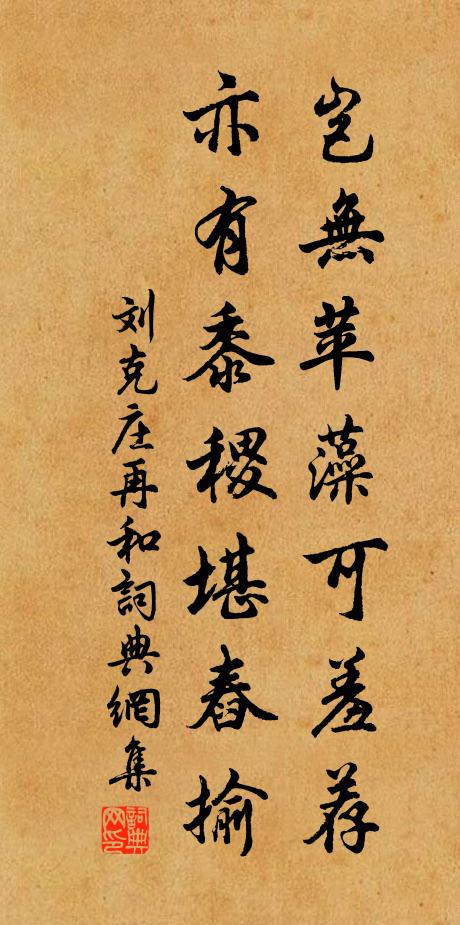 岂無苹藻可羞荐
亦有黍稷堪舂揄
刘克庄再和詞典網集
詞典网印